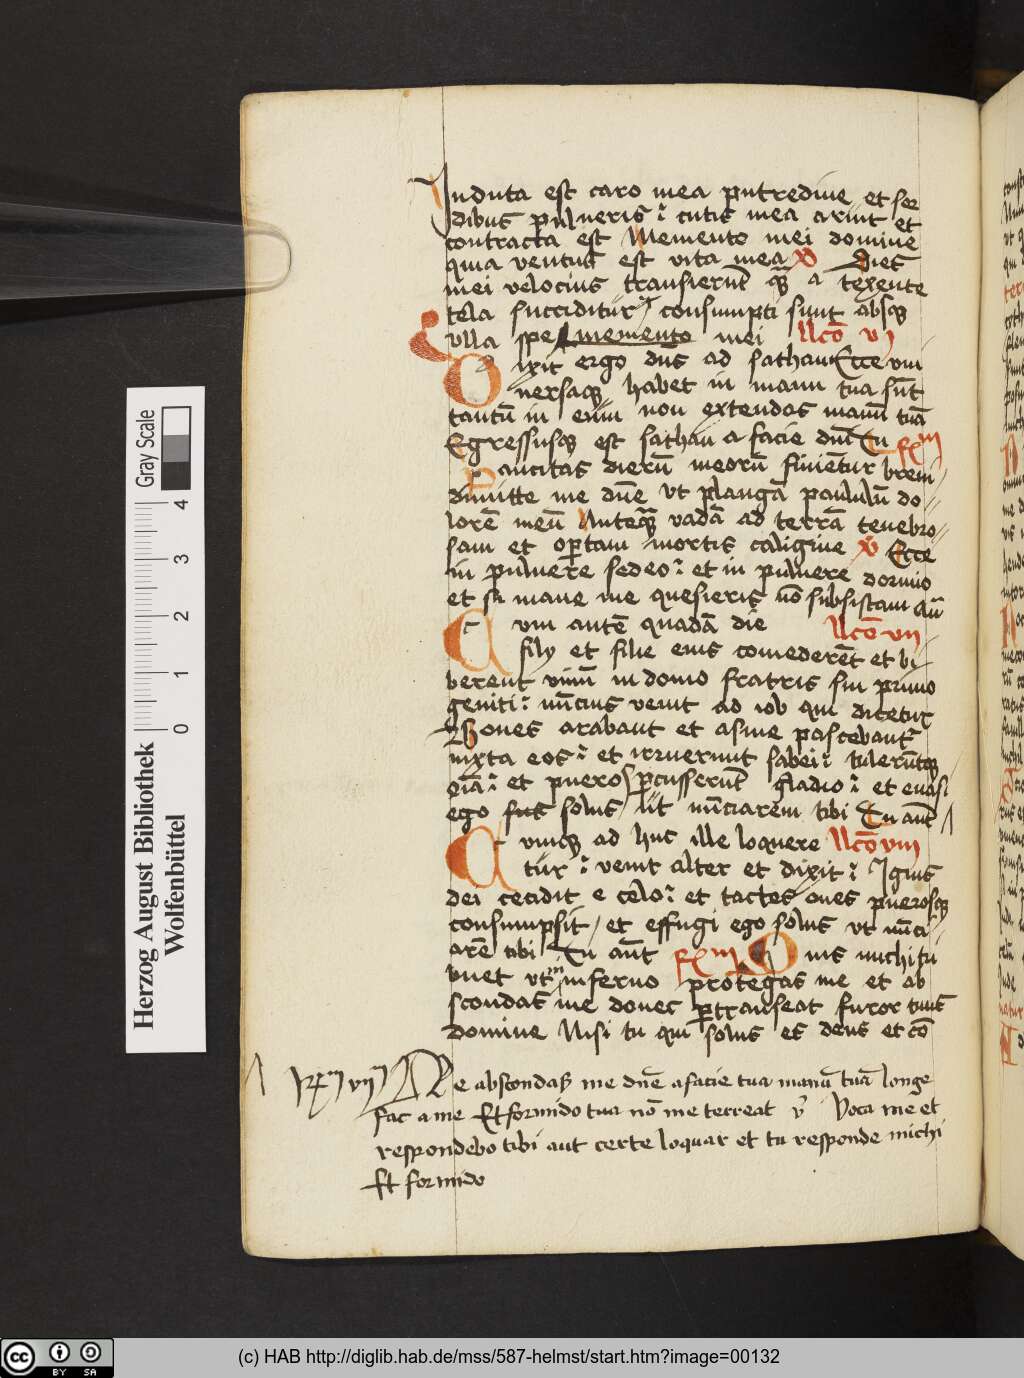 Induta est caro mea putredine et sor
dibus pulueris: cutis mea aruit et
contracta est Memento mei domine
quia ventus est vita mea v̄ Dies
mei velocius transierūt q̄ȝ a texente
tela succiditur consumpti sunt absqȝ
vlla spe memento mei llcō vi
Dixit ergo dn̄s ad sathan Ecce vni
uersaqȝ habet in manu tua sūt
tantū in eum non extendas manū tuā
Egressusqȝ est sathan a facie dn̄i Tu
Paucitas dierū meorū finiētur breui
dimitte me dn̄e vt plangā paululū do
lorē meū Anteqȝ vadā ad terrā tenebro
sam et optam mortis caligine v̄ Ecce
in puluere sedeo: et in puluere dormio
et si mane me quesieris nō subsistam
Cum autē quadā die llcō vii
filij et filie eius comederēt et bi
berent vinū in domo fratris sui primo
geniti: nūcius venit ad iob qui diceret
Boues arabant et asine pascebant
iuxta eos: et irruerunt sabei: tulerūtqȝ
oīa: et pueros pcusserūt gladio: et euasi
ego solus ut nūciarem tibi Tu aūt
Cumqȝ ad huc ille loquere llcō viii
tur: venit alter et dixit: Ignis
dei cecidit e celo: et tactes oues puerosqȝ
consumpsit et effugi ego solus vt nūci
arē tibi Tu aūt Quis michi tri
buet vt in inferno protegas me et ab
scondas me donec ptranseat furor tuus
domine Nisi tu qui solus es deus et cō
Ne abscondas me dn̄e a facie tua manū tuā longe
fac a me Et formido tua nō me terreat v̄ Voca me et
respondebo tibi aut certe loquar et tu responde michi
Et formido
Herzog August Bibliothek
Wolfenbüttel
0 1 2 3 4
Gray Scale
(c) HAB http://diglib.hab.de/mss/587-helmst/start.htm?image=00132
CC BY SA